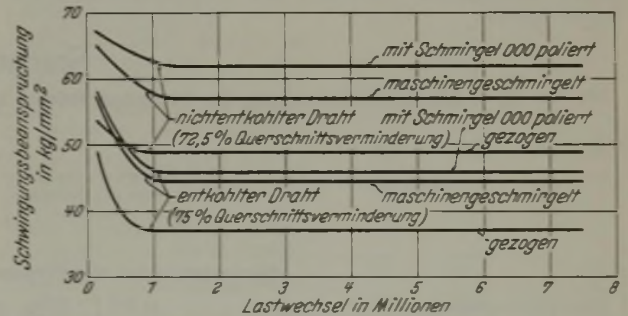 Schwingungsbeanspruchung
in kg/mm²
70
60
50
40
30
mit Schmirgel 000 poliert
maschinengeschmirgelt
nichtentkohlter Draht
(72,5% Querschnittsverminderung)
mit Schmirgel 000 poliert
gezogen
entkohlter Draht
(75% Querschnittsverminderung)
maschinengeschmirgelt
gezogen
0 1 2 3 4 5 6 7 8
Lastwechsel in Millionen